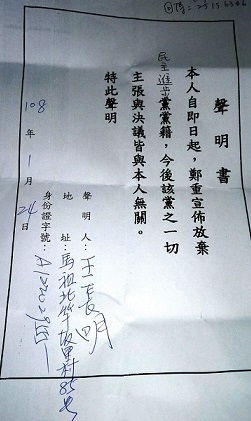 聲明書
本人自即日起，鄭重宣佈放棄
民主進步黨黨籍，今後該黨之一切
主張與決議皆與本人無關。
特此聲明
聲明人：王長明
地址：馬祖北竿坂里村85號
身份證字號：
108年1月24日